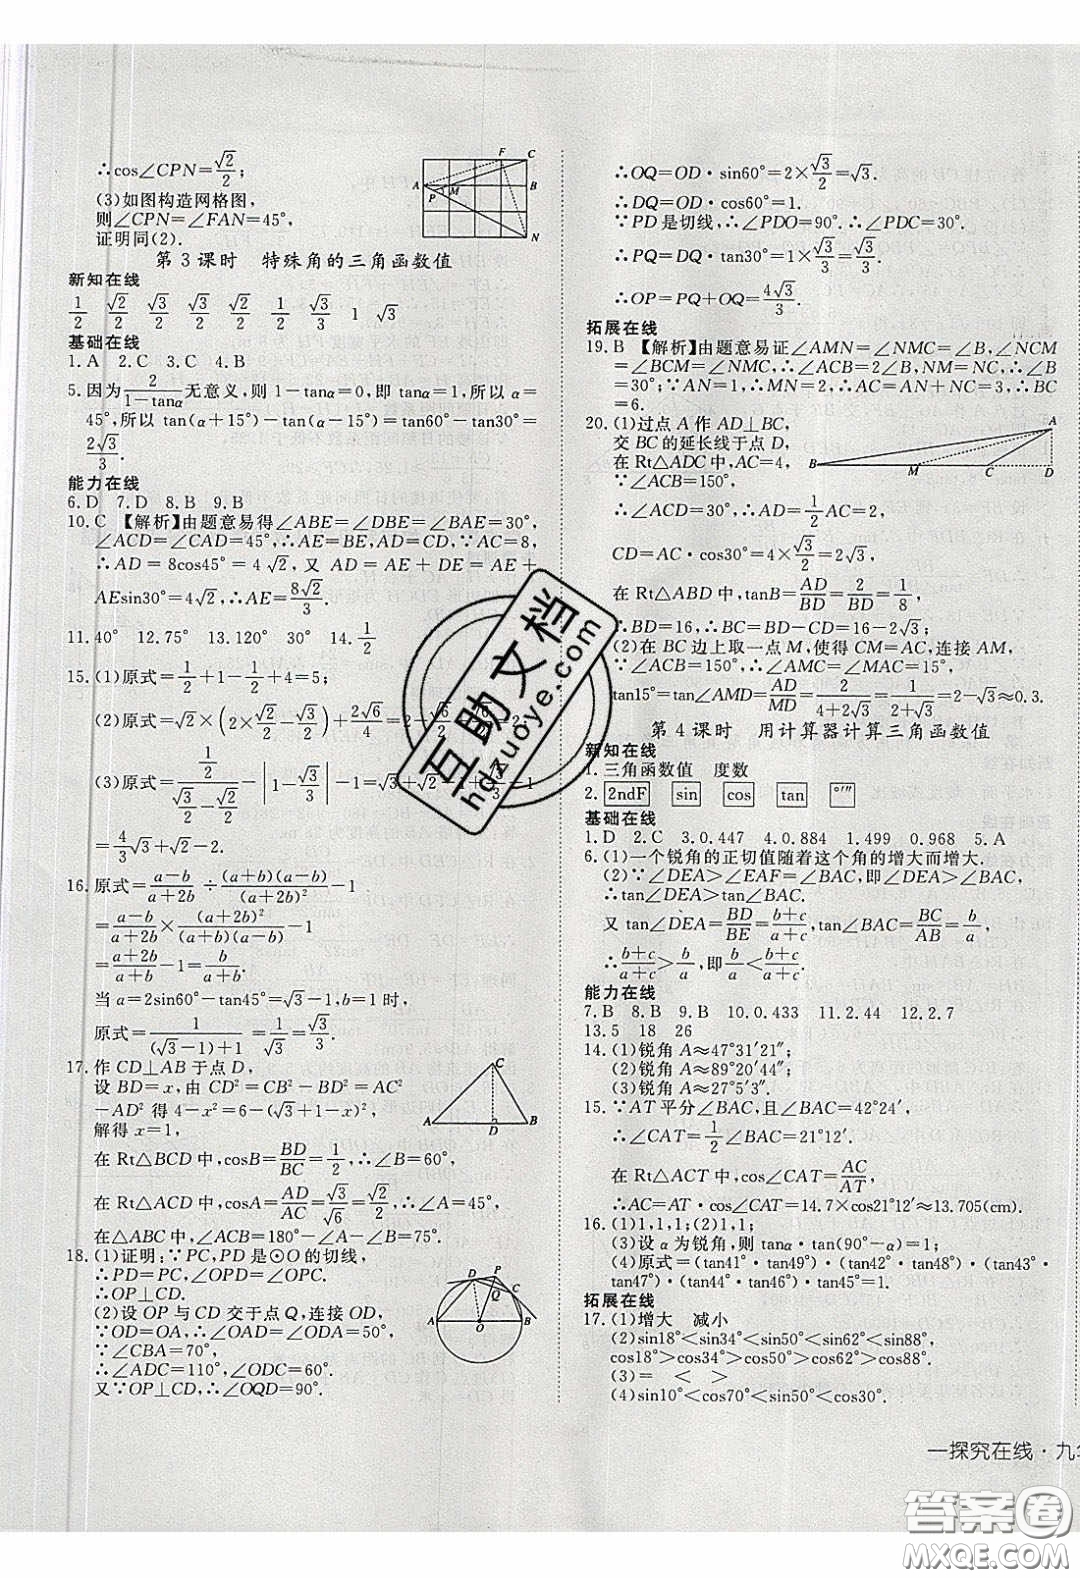 ∴cos∠CPN=√2/2;
(3)如图构造网格图,
则∠CPN=∠FAN=45°,
证明同(2).
F C
A M B
P
N
第3课时 特殊角的三角函数值
新知在线
1/2 √2/2 √3/2 √3/2 √2/2 1/2 √3/3 1 √3
基础在线
1.A 2.C 3.C 4.B
5.因为2/(1-tanα)无意义,则1-tanα=0,即tanα=1,所以α=
45°,所以tan(α+15°)-tan(α-15°)=tan60°-tan30°=
2√3/3.
能力在线
6.D 7.D 8.B 9.B
10.C 【解析】由题意易得∠ABE=∠DBE=∠BAE=30°,
∠ACD=∠CAD=45°,∴AE=BE,AD=CD.∵AC=8,
∴AD=8cos45°=4√2,又AD=AE+DE=AE+
AEsin30°=4√2,∴AE=8√2/3.
11.40° 12.75° 13.120° 30° 14.1/2
15.(1)原式=1/2+1-1/2+4=5;
(2)原式=√2×(2×√2/2-√3/2)+2√6/4=2-√6/2+√6/2=2;
(3)原式=(1/2)/(√3/2-1/2)-|1-√3/3|=
=4/3√3+√2-2.
16.原式=(a-b)/(a+2b)÷(a+b)(a-b)/(a+2b)²-1
=(a-b)/(a+2b)×(a+2b)²/(a+b)(a-b)-1
=(a+2b)/(a+b)-1=b/(a+b).
当a=2sin60°-tan45°=√3-1,b=1时,
原式=1/((√3-1)+1)=1/√3=√3/3.
17.作CD⊥AB于点D,
设BD=x,由CD²=CB²-BD²=AC²
-AD²得4-x²=6-(√3+1-x)²,
解得x=1,
C
A D B
在Rt△BCD中,cosB=BD/BC=1/2,∴∠B=60°,
在Rt△ACD中,cosA=AD/AC=√3/√6=√2/2,∴∠A=45°,
在△ABC中,∠ACB=180°-∠A-∠B=75°.
18.(1)证明:∵PC,PD是⊙O的切线,
∴PD=PC,∠OPD=∠OPC.
∴OP⊥CD.
(2)设OP与CD交于点Q,连接OD,
∵OD=OA,∴∠ODA=∠ODA=50°,
∵∠CBA=70°,
∴∠ADC=110°,∠ODC=60°.
又∵OP⊥CD,∴∠OQD=90°.
D P
Q C
A O B
∴OQ=OD·sin60°=2×√3/2=√3.
∴DQ=OD·cos60°=1.
∵PD是切线,∴∠PDO=90°.∴∠PDC=30°.
∴PQ=DQ·tan30°=1×√3/3=√3/3.
∴OP=PQ+OQ=4√3/3.
拓展在线
19.B 【解析】由题意易证∠AMN=∠NMC=∠B,∠NCM
=∠BCM=∠NMC,∴∠ACB=2∠B,NM=NC,∴∠B
=30°;∵AN=1,∴MN=2,∴AC=AN+NC=3,∴BC
=6.
20.(1)过点A作AD⊥BC,
交BC的延长线于点D,
在Rt△ADC中,AC=4,
∵∠ACB=150°,
A
B M C D
∴∠ACD=30°,∴AD=1/2AC=2,
CD=AC·cos30°=4×√3/2=2√3,
在Rt△ABD中,tanB=AD/BD=2/BD=1/8,
∴BD=16,∴BC=BD-CD=16-2√3;
(2)在BC边上取一点M,使得CM=AC,连接AM,
∵∠ACB=150°,∴∠AMC=∠MAC=15°,
tan15°=tan∠AMD=AD/MD=2/(4+2√3)=1/(2+√3)=2-√3≈0.3.
第4课时 用计算器计算三角函数值
新知在线
1.三角函数值 度数
2.2ndF sin cos tan °′″
基础在线
1.D 2.C 3.0.447 4.0.884 1.499 0.968 5.A
6.(1)一个锐角的正切值随着这个角的增大而增大.
(2)∵∠DEA>∠EAF=∠BAC,即∠DEA>∠BAC,
∴tan∠DEA>tan∠BAC.
又tan∠DEA=BD/BE=(b+c)/(a+c),tan∠BAC=BC/AB=b/a,
∴(b+c)/(a+c)>b/a,即b/a<(b+c)/(a+c).
能力在线
7.B 8.B 9.B 10.0.433 11.2.44 12.2.7
13.5 18 26
14.(1)锐角A≈47°31′21″;
(2)锐角A≈89°20′44″;
(3)锐角A≈27°5′3″.
15.∵AT平分∠BAC,且∠BAC=42°24′,
∴∠CAT=1/2∠BAC=21°12′.
在Rt△ACT中,cos∠CAT=AC/AT.
∴AC=AT·cos∠CAT=14.7×cos21°12′≈13.705(cm).
16.(1)1,1,1;(2)1,1;
(3)设α为锐角,则tanα·tan(90°-α)=1;
(4)原式=(tan41°·tan49°)·(tan42°·tan48°)·(tan43°·
tan47°)·(tan44°·tan46°)·tan45°=1.
拓展在线
17.(1)增大 减小
(2)sin18°<sin34°<sin50°<sin62°<sin88°,
cos18°>cos34°>cos50°>cos62°>cos88°.
(3)= < >
(4)sin10°<cos70°<sin50°<cos30°.
一探究在线·九
互助文档
hdzuoye.com
答案圈
MXQE.COM